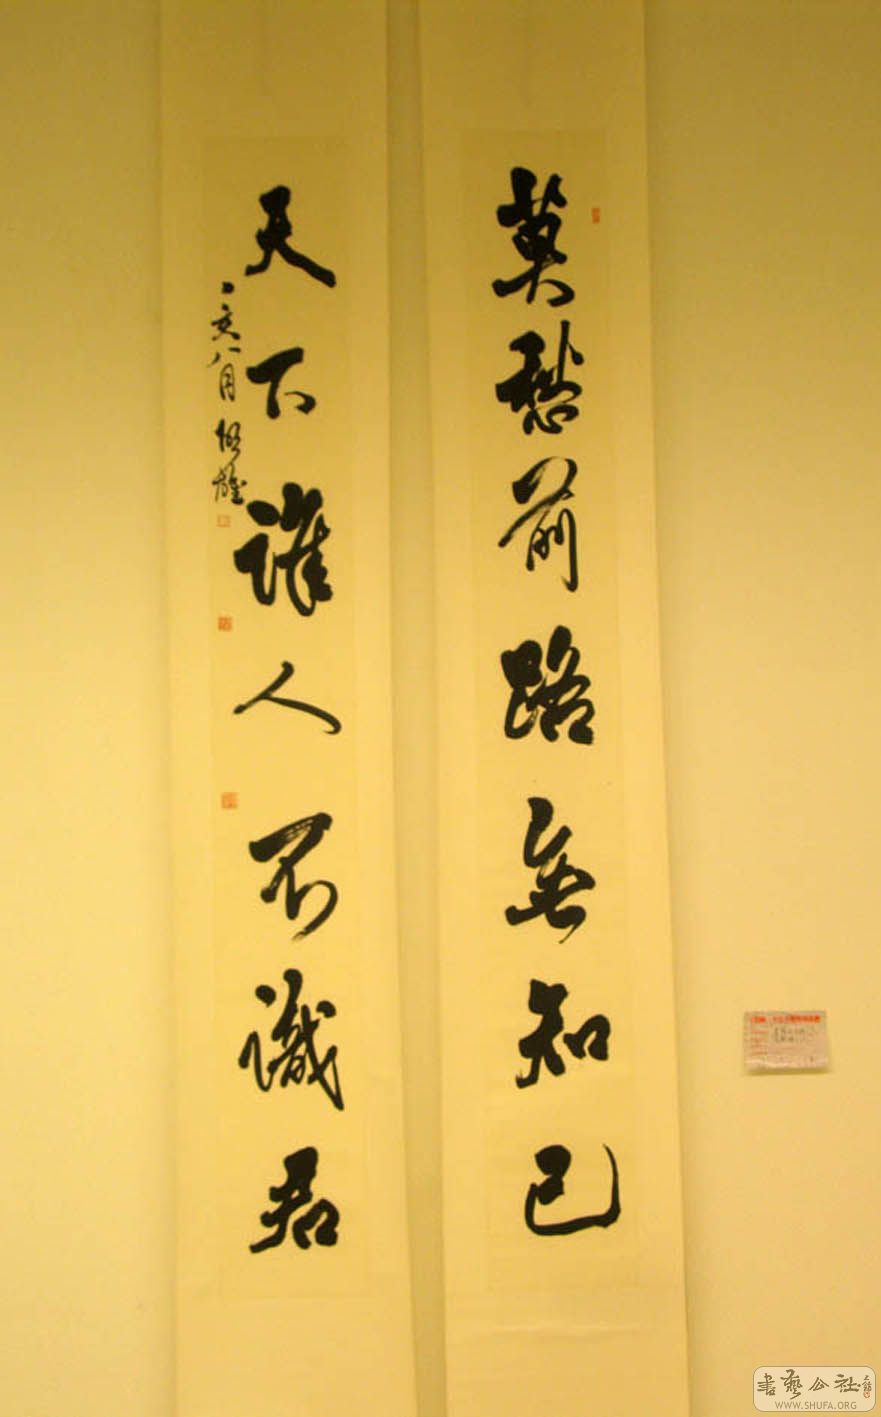 莫愁前路無知己
天下誰人不識君
丁亥八月
書藝公社
WWW.SHUFA.ORG